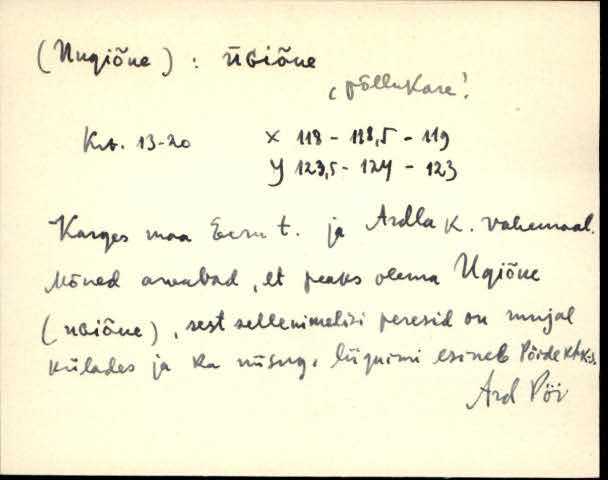 (Nugiõue) : ŭGiõue
‚põllukare'
Krt. 13-20 X 118 - 118,5 - 119
Y 123,5 - 124 - 123
Karges maa Eeru t. ja Ardla k. vahemaal.
Mõned arvabad, et peaks olema Ugiõue
(uGiõue), sest sellenimelisi peresid on mujal
külades ja ka niisug. liiginimi esineb Pöide khk-s.
Ard Pöi